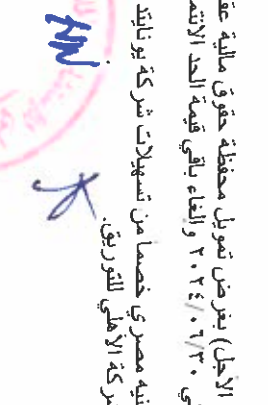 الأجل) بغرض تمويل محفظة حقوق مالية
٢٠٢٤/٠٦/٣٠ و الغاء باقي قيمة الحد
مصري خصما من تسهيلات شركة يونايتد
الأهلي للتوريق.